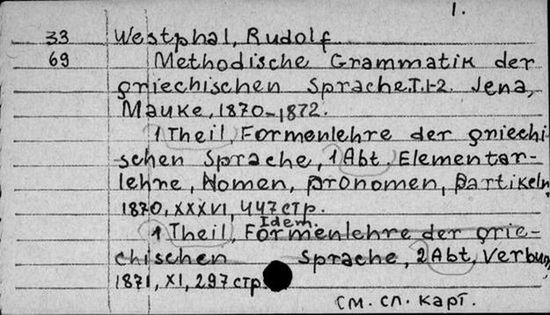 1.
33 Westphal, Rudolf
69 Methodische Grammatik der
griechischen Sprache. T. 1-2. Jena,
Mauke, 1870-1872.
1 Theil, Formenlehre der griechi-
schen Sprache, 1 Abt. Elementar-
lehre, Nomen, pronomen, partikeln
1870, XXXVI, 447 стр.
Idem.
1 Theil, Formenlehre der grie-
chischen Sprache, 2 Abt, Verbum
1871, XI, 297 стр
см. сл. карт.